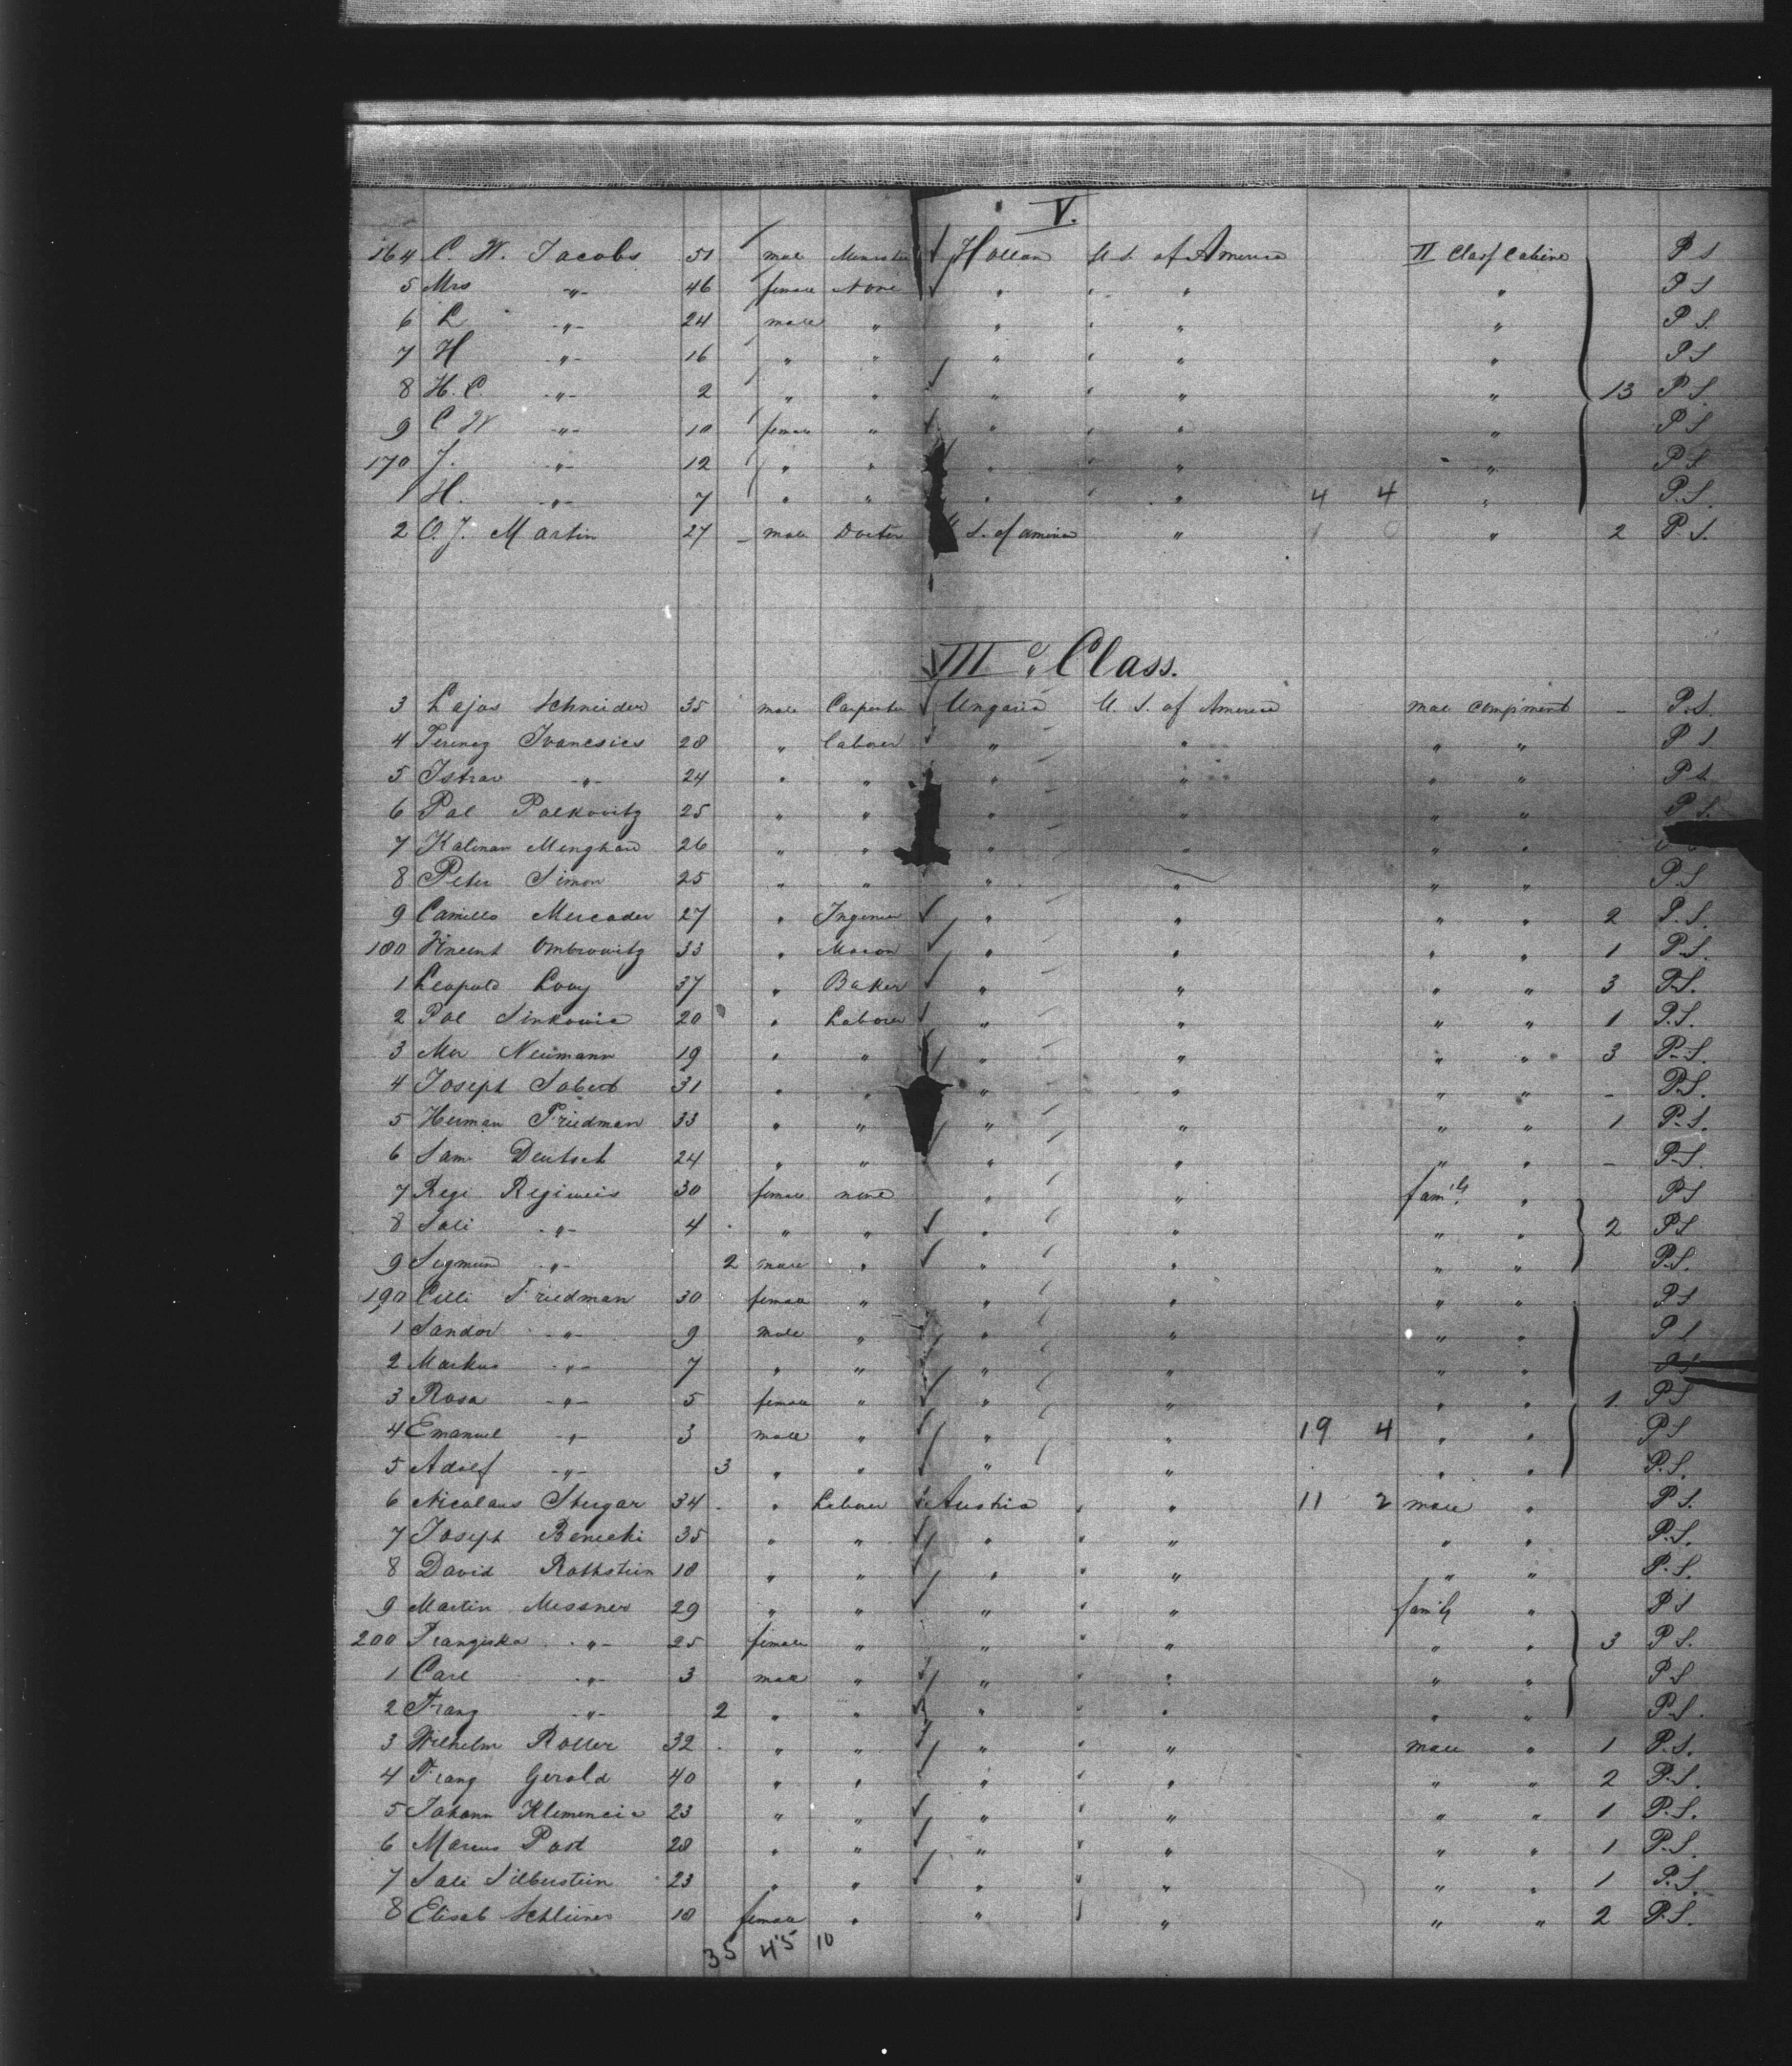 V.
164 C. W. Jacobs 51 male Minister Hollan U. S. of America II Class Cabine P S
5 Mrs -"- 46 female None " " " " P S
6 L -"- 24 male " " " " " P S.
7 H -"- 16 " " " " " " P S
8 H. C. -"- 2 " " " " " " 13 P S.
9 C W -"- 10 female " " " " " P S
170 J. -"- 12 " " " " " " P S
1 H. -"- 7 " " " " " 4 4 " P. S.
2 O. J. Martin 27 male Docter U S. of america " 1 0 " 2 P S.
III Class.
3 Lajos Schneider 35 male Carpenter Ungaria U. S. of America male compiment - P. S.
4 Ferencz Ivanesics 28 " laborer " " " " P S.
5 Istvav -"- 24 " " " " " " P S
6 Pal Palkovitz 25 " " " " " " P S.
7 Kalman Menghan 26 " " " " " "
8 Peter Simon 25 " " " " " " P S
9 Camillo Mercader 27 " Ingenier " " " " 2 P. S.
180 Vincent Ombrowitz 33 " Mason " " " " 1 P. S.
1 Leopold Lovy 37 " Baker " " " " 3 P. S.
2 Pal Sinkovic 20 " Laborer " " " " 1 P. S.
3 Mor Neumann 19 " " " " " " 3 P. S.
4 Joseph Sabeob 31 " " " " " " - P. S.
5 Herman Friedman 33 " " " " " " 1 P. S.
6 Sam Deutsch 24 " " " " " " - P. S.
7 Regi Regiweis 30 female none " " famil. " P S
8 Sali -"- 4 " " " " " " 2 P S
9 Sigmund -"- 2 male " " " " " P. S.
190 Cilli Friedman 30 female " " " " " P S
1 Sandor -"- 9 male " " " " " P S
2 Markus -"- 7 " " " " " " P S
3 Rosa -"- 5 female " " " " " 1 P S
4 Emanuel -"- 3 male " " " 19 4 " " P S
5 Adolf -"- 3 " " " " " " P. S.
6 Nicolaus Stugar 34 " Laborer Austria " " 11 2 male " P S.
7 Joseph Benecki 35 " " " " " " " P. S.
8 David Rothstein 18 " " " " " " " P. S.
9 Martin Messner 29 " " " " " family " P S
200 Franziska -"- 25 female " " " " " " 3 P S.
1 Carl -"- 3 male " " " " " " P S
2 Franz -"- 2 " " " " " " " P. S.
3 Wilhelm Roller 32 " " " " " male " 1 P. S.
4 Franz Gerold 40 " " " " " " " 2 P. S.
5 Johann Klemencic 23 " " " " " " " 1 P. S.
6 Marcus Post 28 " " " " " " " 1 P. S.
7 Sali Silberstein 23 " " " " " " " 1 P. S.
8 Elisab Schleiner 18 female " " " " " " 2 P. S.
35 45 10